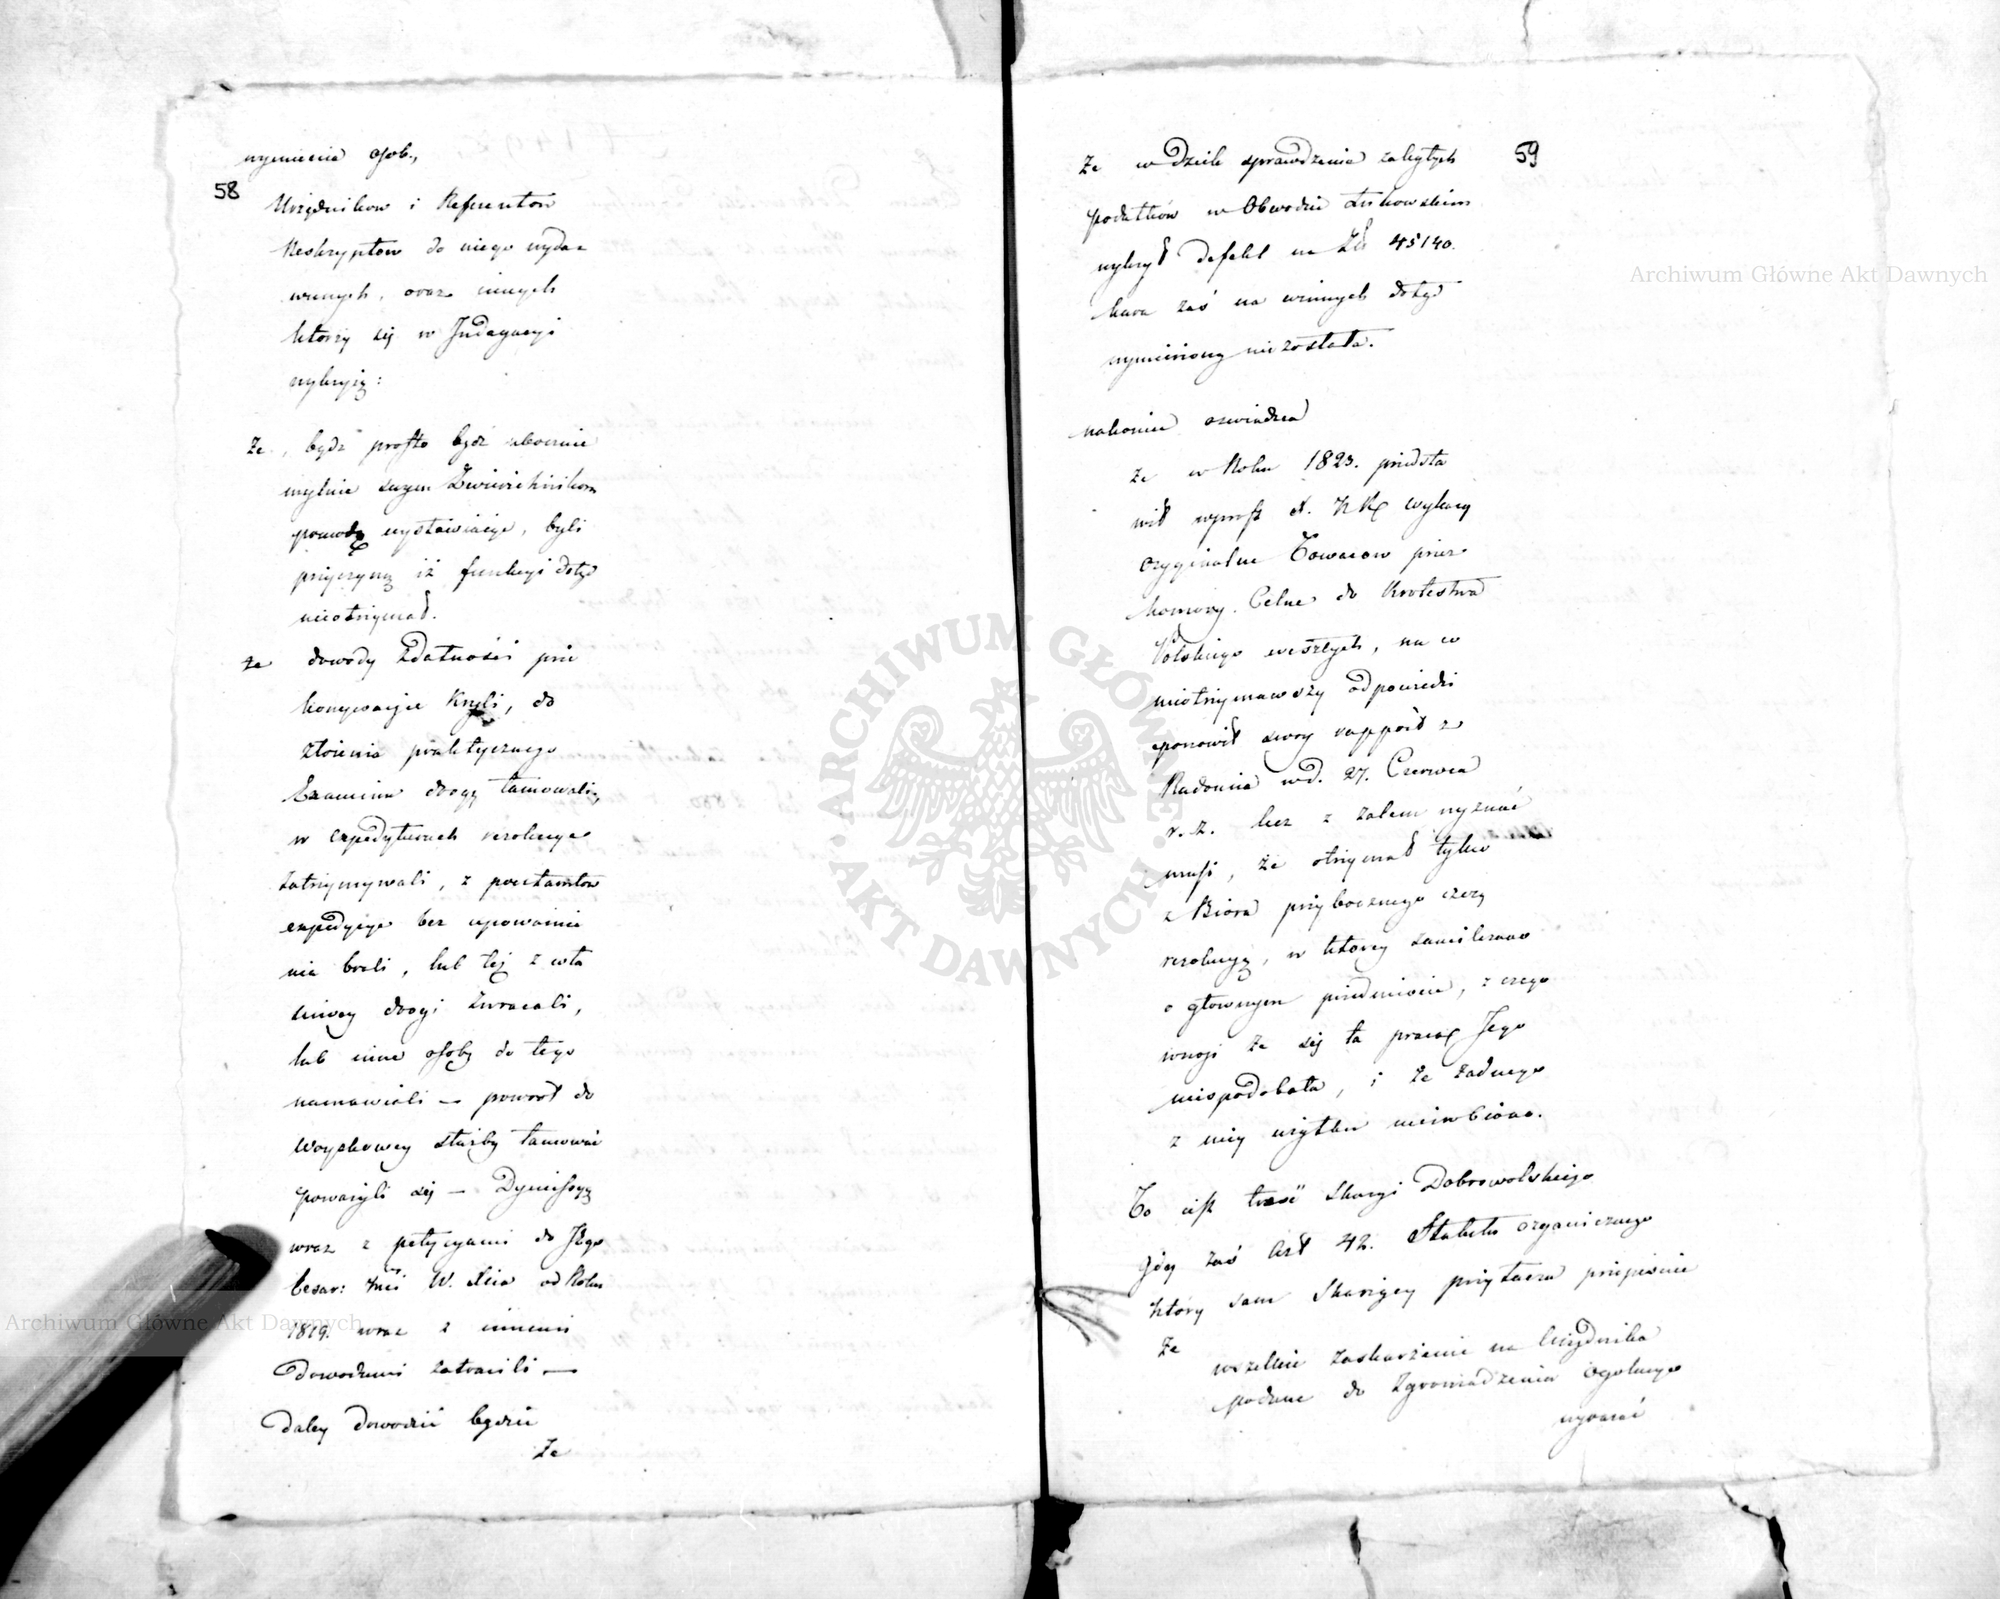 wymienia osob.,
58
Urzędnikow i Referentow
Reskryptow do niego wyda=
wanych, oraz innych
ktorzy się w Indagacyi
wykryią:
że, bądź prosto bądź ubocznie
mylnie swym Zwierzchnikom
powody wystawiaiąc, byli
przyczyną iż funkcyi dotąd
nieotrzymał.
że dowody Zdatności prze
konywaiące Kryli, do
złożenia praktycznego
Examinu drogę tamowali,
w expedyturach rezolucye
zatrzymywali, z pocztamtow
expedycye bez upoważnie
nia brali, lub tej z wła
ściwey drogi zwracali,
lub inne osoby do tego
namawiali — powrot do
Woyskowey służby tamować
poważyli się — Dymissyą
wraz z petycyami do Jego
Cesar: Mci W. Xcia od Roku
1819. wraz z innemi
Dowodami zatracili —
Daley dowodzić będzie
Że
59
Że w dziele sprawdzenia zaległych
podatków w Obwodzie Łukowskim
wykrył defekt na Zł 45140.
kara zaś na winnych dotąd
wymierzoną niezostała.
nakoniec oswiadcza
że w Roku 1823. przedsta
wił wprost
wykazy
oryginalne Towarow przez
Komory Celne do Krolestwa
Polskiego weszłych, na co
nieotrzymawszy odpowiedzi
ponowił swoy rapport z
Radomia w d. 27. Czerwca
r. z. lecz z żalem wyznać
musi, że otrzymał tylko
z Biora przybocznego
rezolucyą, w ktorey zamilczano
o głownym przedmiocie, z czego
wnosi że się ta praca Jego
niespodobała, i że żadnego
z niey użytku niezrobiono.
To iest treść skargi Dobrowolskiego
Gdy zaś Art 42. Statutu organicznego
ktory sam Skarżący przytacza przepisuie
że
wszelkie zaskarżenie na Urzędnika
podane do Zgromadzenia Ogolnego
wyrazać
Archiwum Główne Akt Dawnych
ARCHIWUM GŁÓWNE AKT DAWNYCH
Archiwum Główne Akt Dawnych